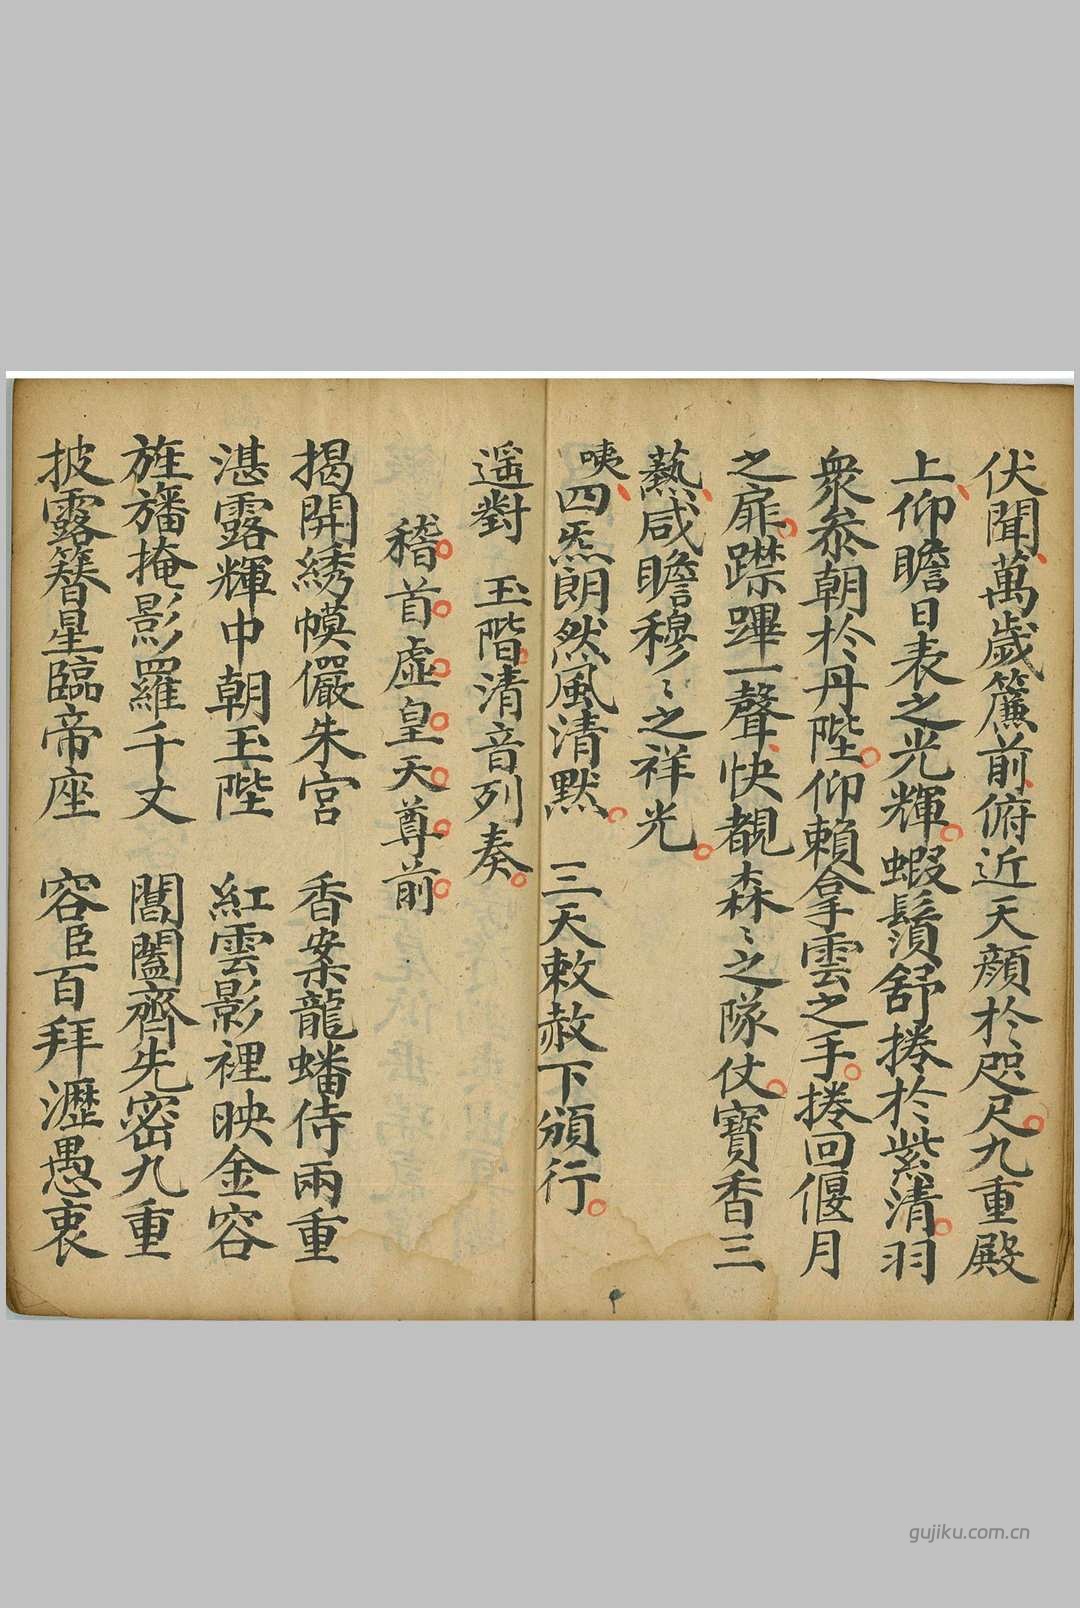 伏聞萬歲簾前俯近天顏於咫尺九重殿
上仰瞻日表之光輝蝦鬚舒捲於紫清羽
衆叅朝於丹陛仰賴拿雲之手捲回偃月
之扉躒蹕一聲快覩森〻之隊仗寶香三
爇咸瞻穆〻之祥光
咦四炁朗然風清默 三天敕赦下頒行
遥對 玉階清音列奏
稽首虛皇天尊前
揭開綉幙儼朱宮 香案龍蟠侍兩重
湛露輝中朝玉陛 紅雲影裡映金容
旌旛掩影羅千丈 閶闔齊先密九重
披露簪星臨帝座 容臣百拜瀝愚衷
gujiku.com.cn